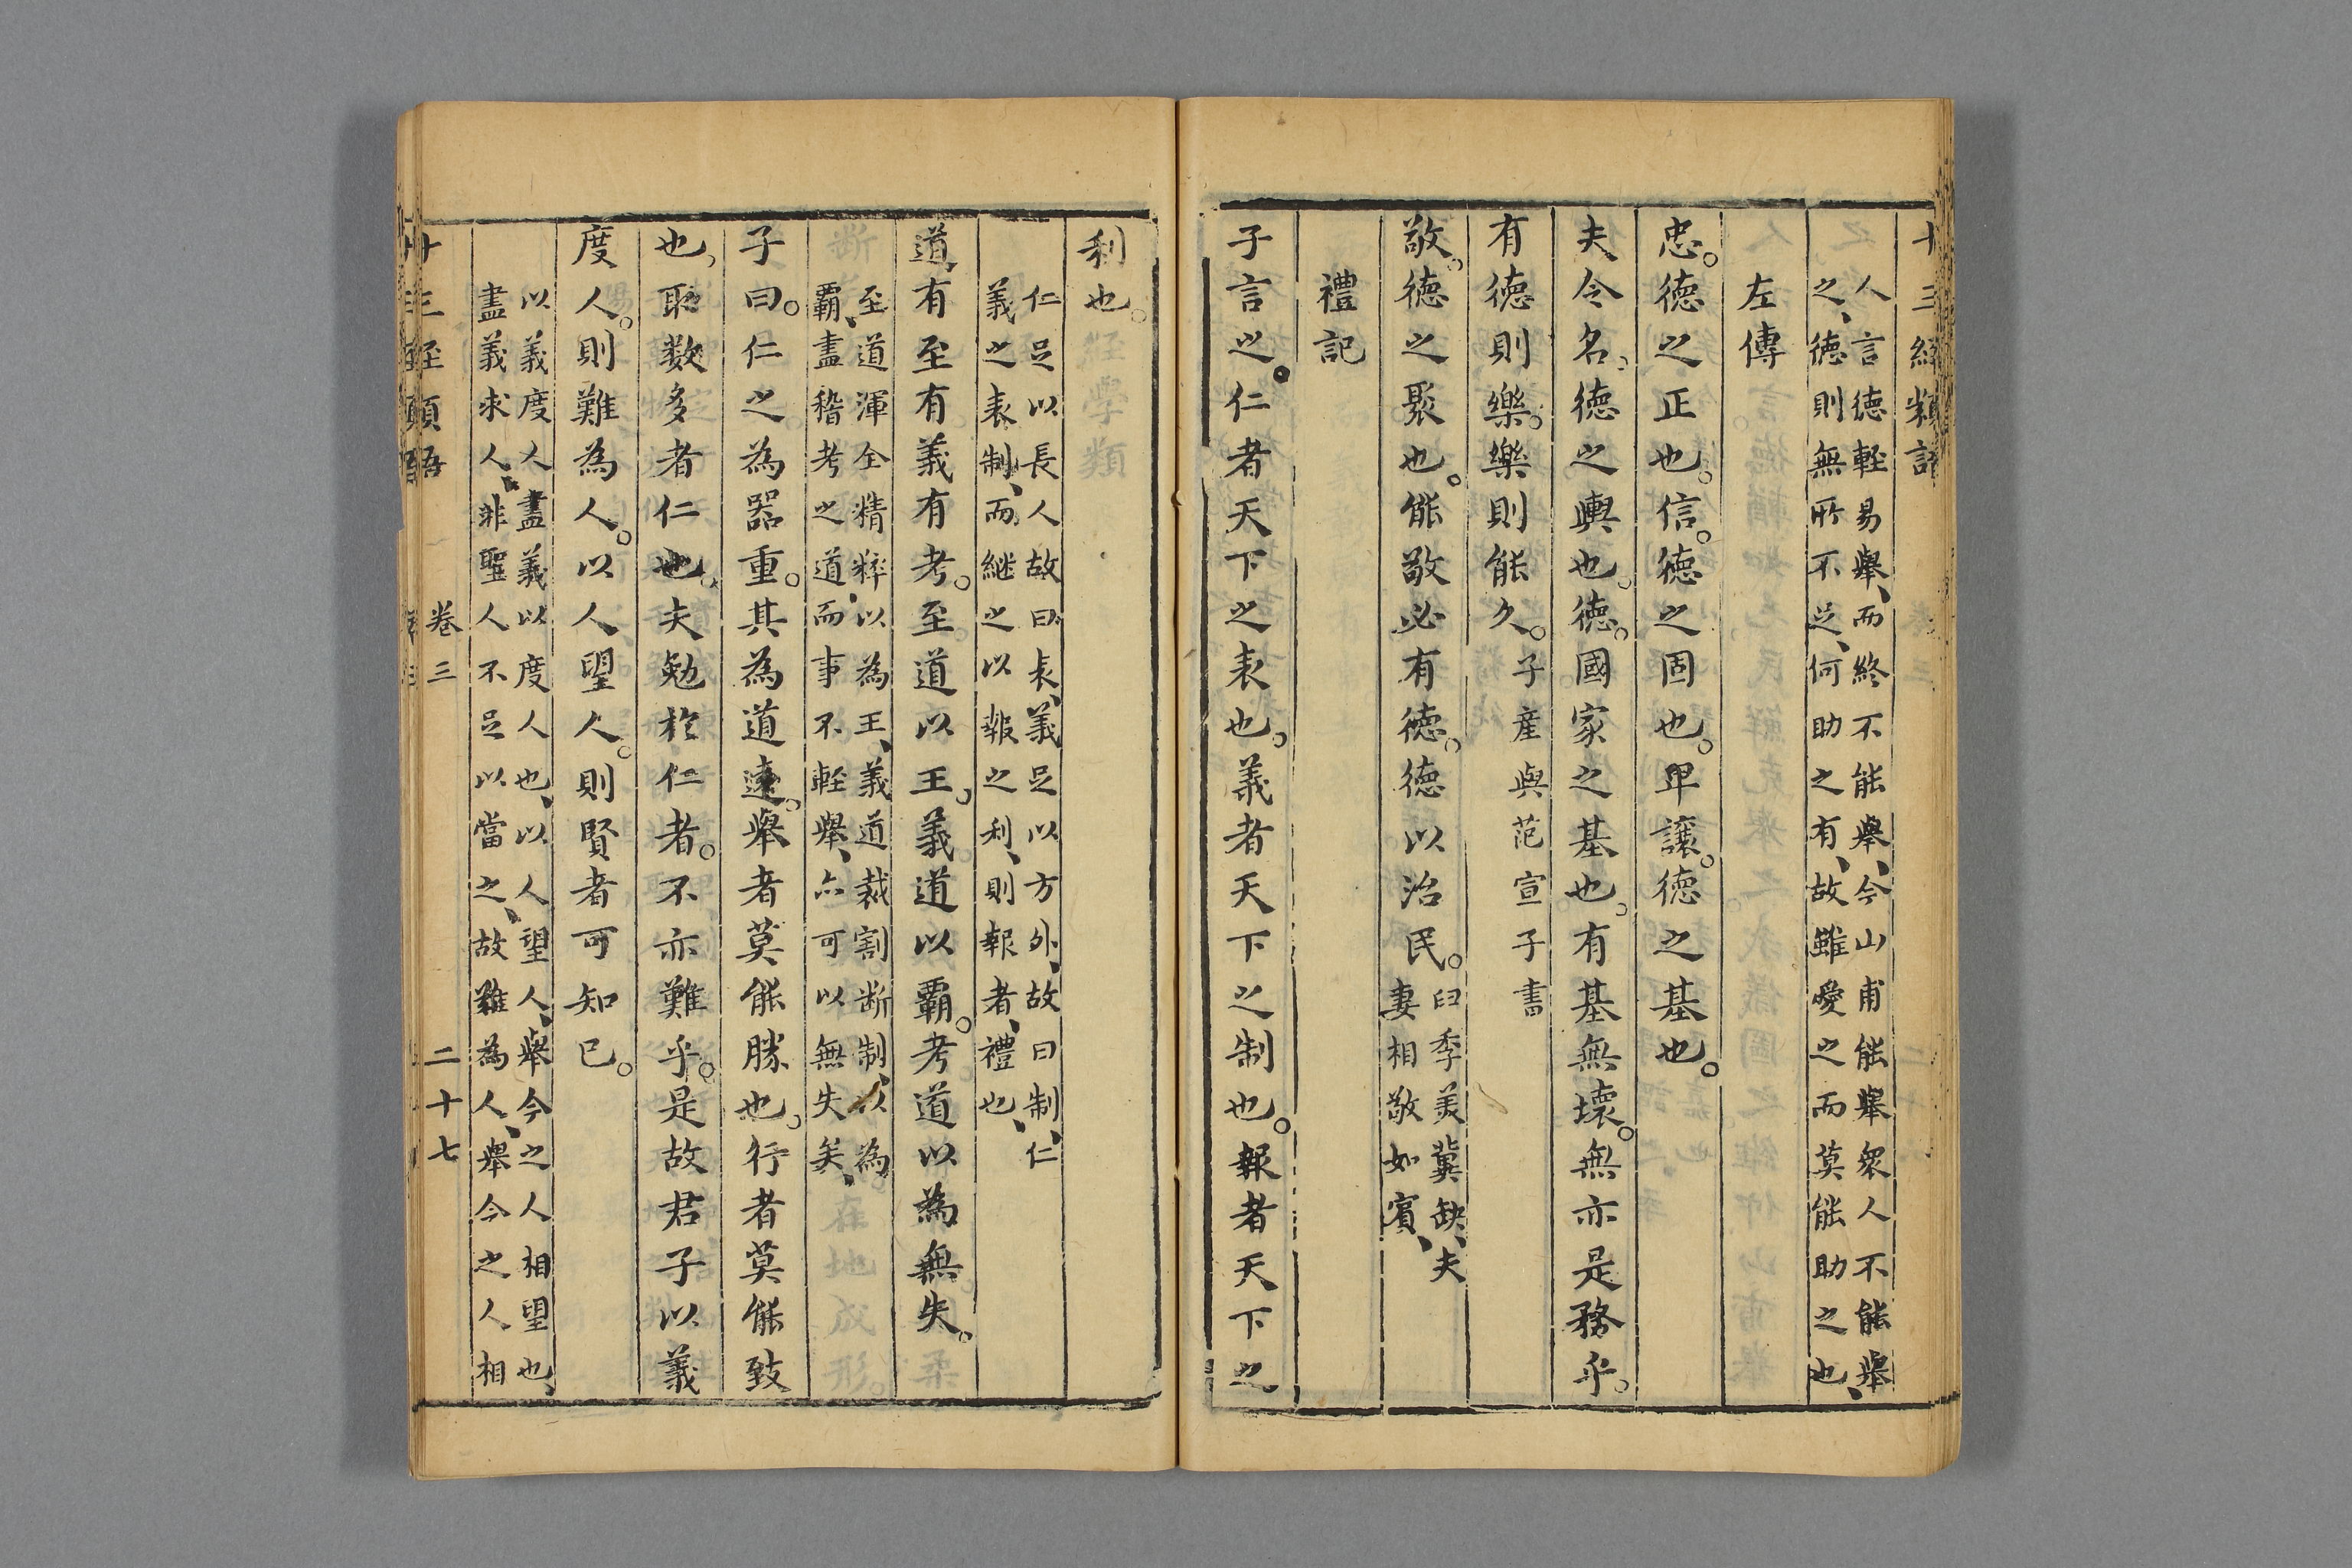 十三經類語
人言徳輕易擧、而終不能擧、今山甫能擧衆人不能擧
之、徳則無所不足、何助之有、故雖愛之而莫能助之也、
左傳
忠。徳之正也。信。徳之固也。卑讓。徳之基也。
夫令名。徳之輿也。徳。國家之基也。有基無壞。無亦是務乎。
有徳則樂。樂則能久。子産與范宣子書
敬。徳之聚也。能敬必有徳。徳以治民。臼季美冀缺、夫
妻相敬如賓、
禮記
子言之。仁者天下之表也。義者天下之制也。報者天下之
利也。
仁足以長人故曰表、義足以方外、故曰制、仁
義之表制、而継之以報之利、則報者、禮也、
道有至有義有考。至道以王。義道以霸。考道以為無失。
至道渾全精粹以為王、義道裁割断制、以為
霸、盡稽考之道、而事不輕擧、亦可以無失矣、
子曰。仁之為器重。其為道遠。擧者莫能勝也。行者莫能致
也。取数多者仁也。夫勉於仁者。不亦難乎。是故君子以義
度人。則難為人。以人望人。則賢者可知已。
以義度人、盡義以度人也、以人望人、擧今之人相望也、
盡義求人、非聖人不足以當之、故難為人、擧今之人相
十三經類語
卷三
二十七